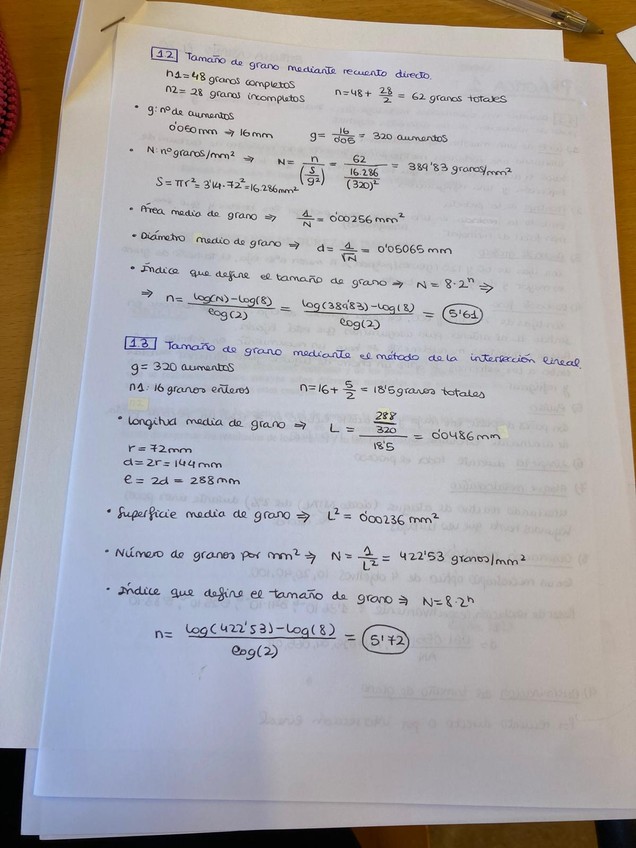 12 Tamaño de grano mediante recuento directo.
n1=48 granos completos
n2= 28 granos incompletos n=48+ 28/2 = 62 granos totales
• g: nº de aumentos
0'050mm ⇒ 16mm g= 16/0'05 = 320 aumentos
• N: nº granos/mm² ⇒ N= n/(S/g²) = 62/(16.286/(320)²) = 389'83 granos/mm²
S=πr²=3'14·72²=16.286mm²
• Área media de grano ⇒ 1/N = 0'00256mm²
• Diámetro medio de grano ⇒ d= 1/√N = 0'05065 mm
• Índice que define el tamaño de grano ⇒ N=8·2ⁿ ⇒
⇒ n= (log(N)-log(8))/log(2) = (log(389'83)-log(8))/log(2) = 5'61
13 Tamaño de grano mediante el método de la intersección lineal.
g= 320 aumentos
n1: 16 granos enteros n=16+ 5/2 = 18'5 granos totales
• Longitud media de grano ⇒ L = (288/320)/18'5 = 0'0486mm
r=72mm
d=2r=144mm
l = 2d= 288mm
• Superficie media de grano ⇒ L² = 0'00236 mm²
• Número de granos por mm² ⇒ N = 1/L² = 422'53 granos/mm²
• Índice que define el tamaño de grano ⇒ N=8·2ⁿ
n= (log(422'53)-log(8))/log(2) = 5'72